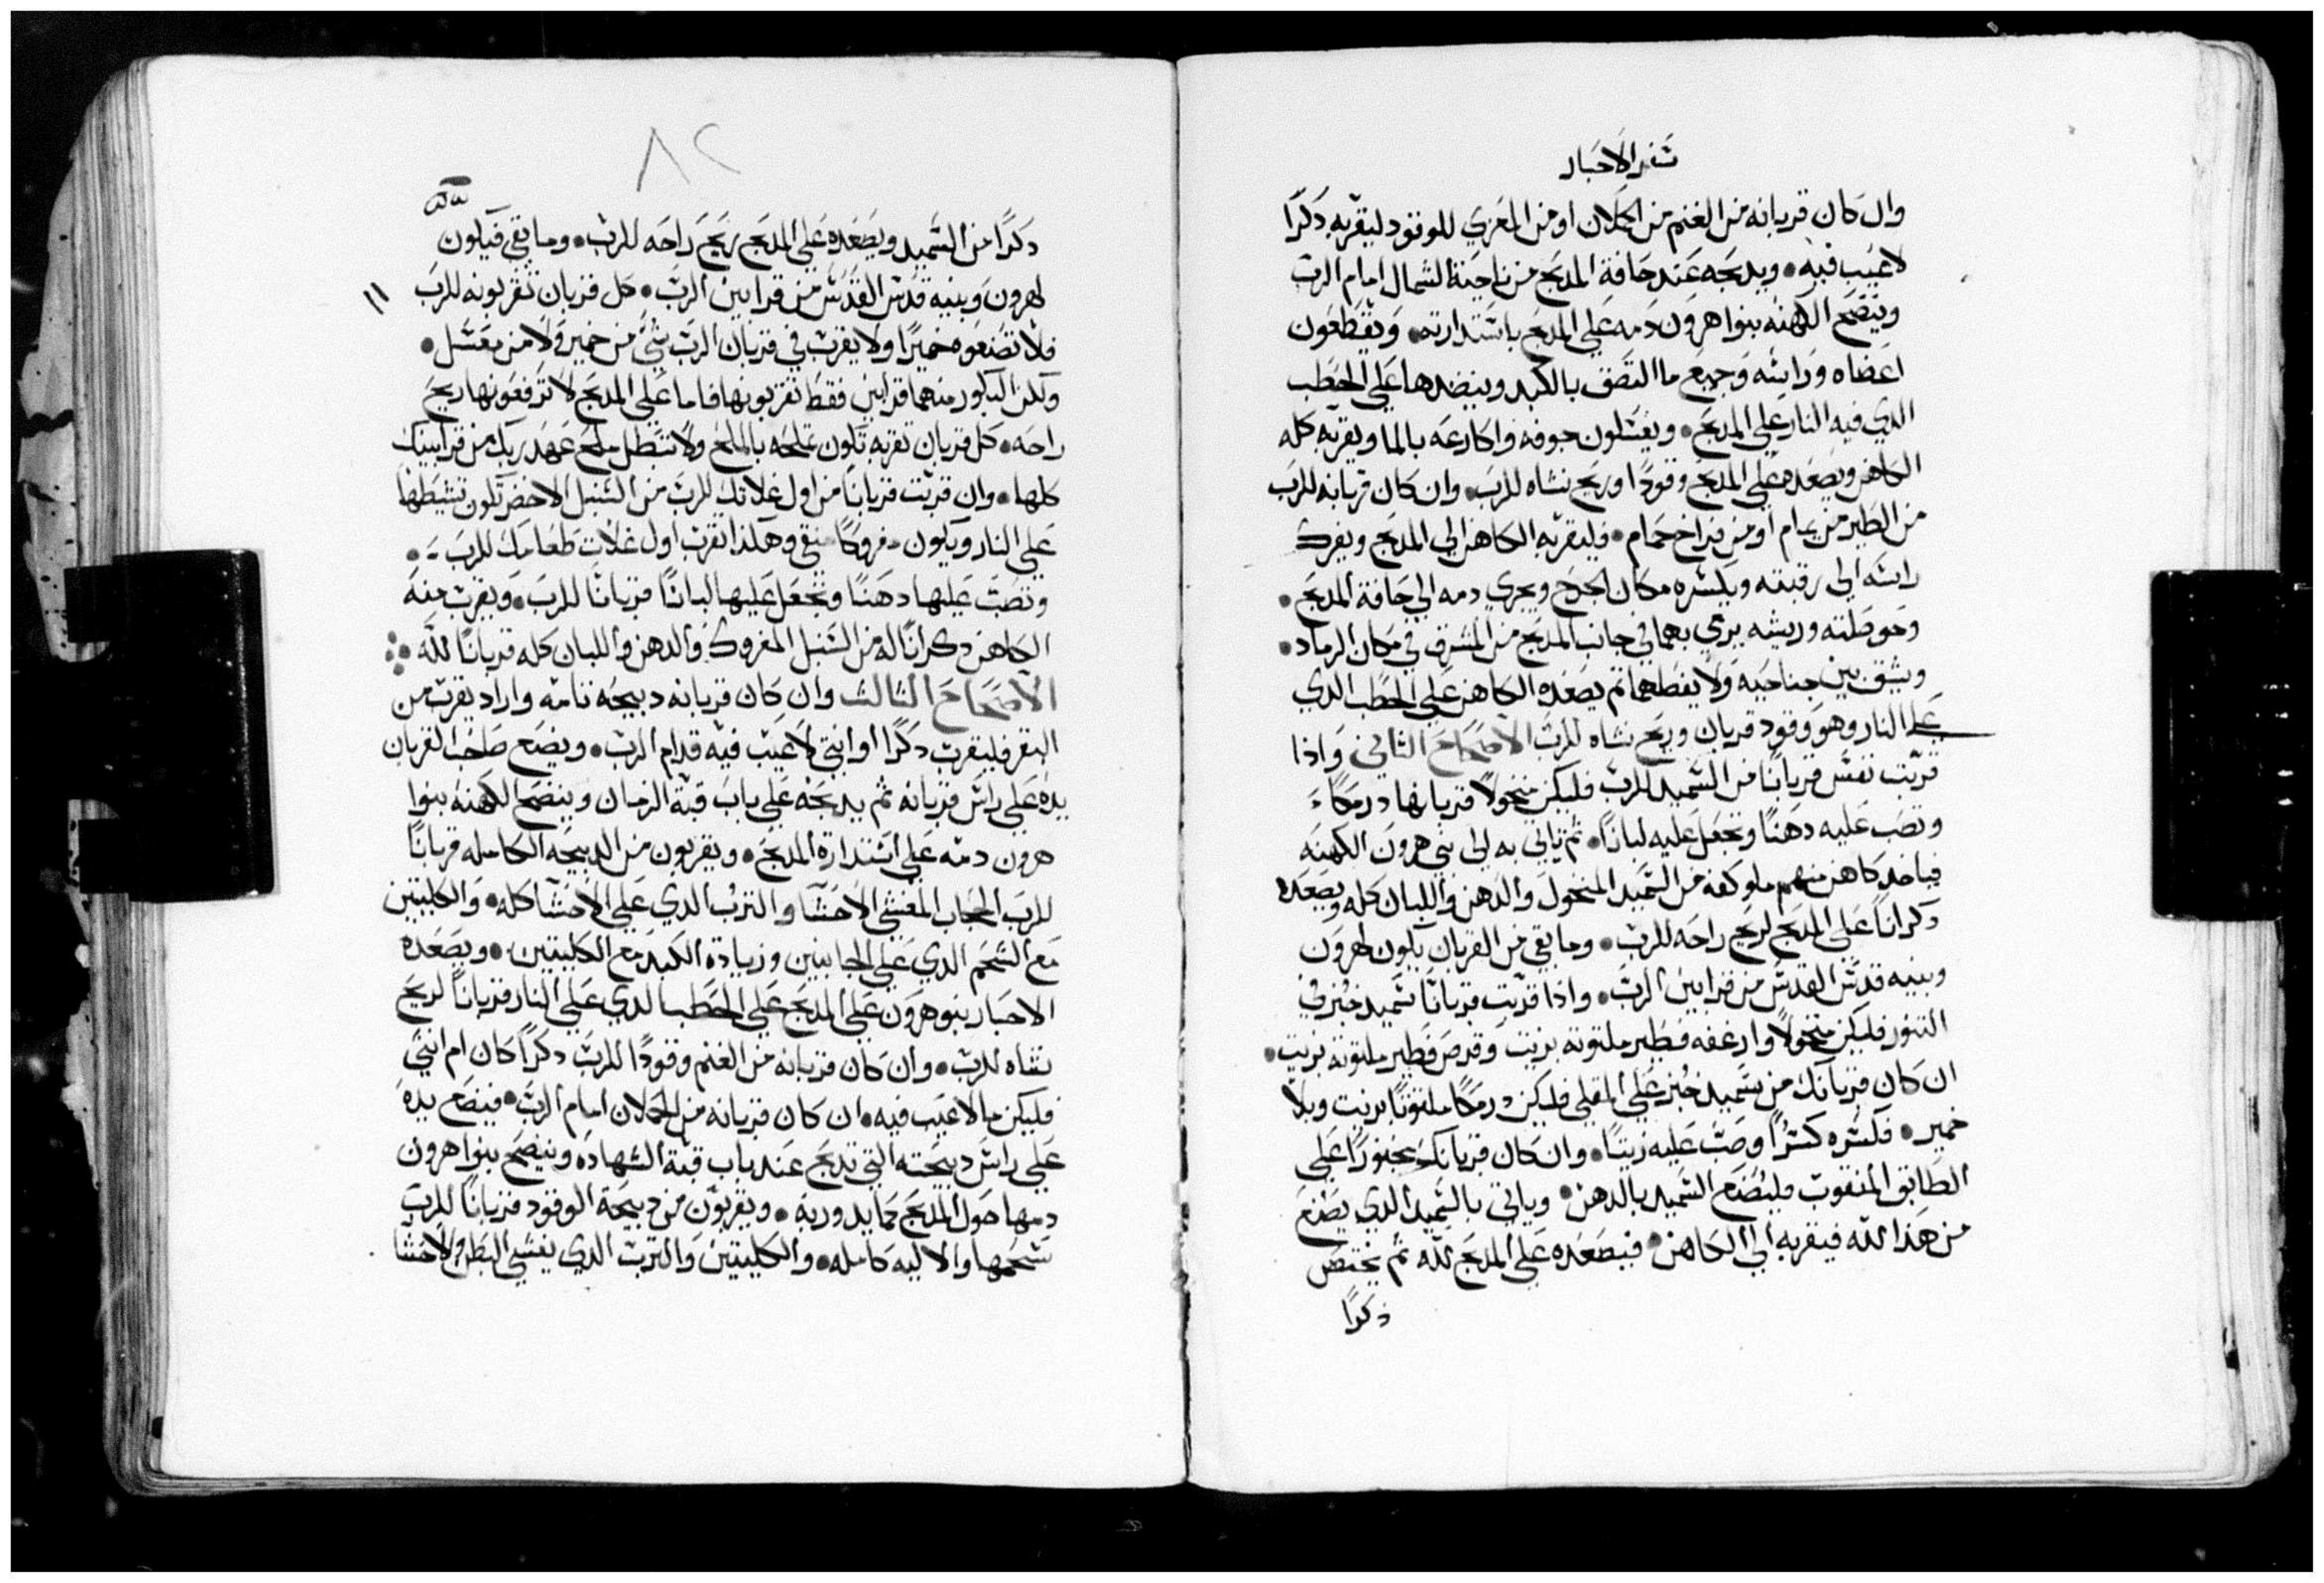 سفر الاحبار
وان كان قربانه من الغنم من الحملان او من المعزي للوقود ليقربه دكرًا
لاعيب فيه • ويدبحه عند حافة المدبح من ناحية الشمال امام الرب
وينضح الكهنه بنوا هرون دمه علي المدبح باستدارته • ويقطعون
اعضاه وراسه وجميع ما التصق بالكبد وينضدها علي الحطب
الدي فيه النار علي المدبح • ويغسلون جوفه واكارعه بالما ويقربه كله
الكاهن ويصعده علي المدبح وقودًا وريح نشاه للرب • وان كان قربانه للرب
من الطير من يمام او من فراخ حمام • فليقربه الكاهن الي المدبح ويفرك
راسه الي رقبته ويكسره مكان الجرح ويجري دمه الي حافة المدبح •
وحوصلته وريشه يرمي بهما في جانب المدبح من المشرق في مكان الرماد •
ويشق بين جناحيه ولا يفصلهما ثم يصعده الكاهن علي الحطب الدي
علي النار وهو وقود قربان وريح نشاه للرب الاصحاح الثاني واذا
قربت نفس قربانًا من السميد للرب فليكن منخولًا قربانها درمكًا
وتصب عليه دهنًا وتجعل عليه لبانًا • ثم ياتي به الي بني هرون الكهنه
فياخد كاهن منهم ملو كفه من السميد المنخول والدهن واللبان كله ويصعده
دكرانًا علي المدبح لريح راحه للرب • وما بقي من القربان يكون لهرون
وبنيه قدس القدس من قرابين الرب • واذا قربت قربانًا سميد خبز في
التنور فليكن منخولًا وارغفه فطير ملتوته بزيت وقرص فطير ملتوته بزيت •
ان كان قربانك من سميد خبز علي المقلي فليكن درمكًا ملتوتًا بزيت وبلا
خمير • فكسره كسرًا وصب عليه زيتًا • وان كان قربانك مخبوزًا علي
الطابق المنقوب فليصنع السميد بالدهن • وياتي بالسميد الدي يصنع
من هدا لله فيقربه الي الكاهن • فيصعده علي المدبح لله ثم يختص
دكرًا
٨٢
دكرًا من السميد ويصعده علي المدبح بريح راحه للرب • وما بقي فيكون
لهرون وبنيه قدس القدس من قرابين الرب • كل قربان تقربونه للرب ١١
فلا تصنعوه خميرًا ولا يقرب في قربان الرب شي من خمير ولا من معسل •
ولكن البكور منهما قرابين فقط تقربونها فاما علي المدبح لا ترفعونها ريح
راحه • كل قربان تقربه تكون تملحه بالملح ولا تبطل ملح عهد ربك من قرابينك
كلها • وان قربت قربانًا من اول غلاتك للرب من السنبل الاخضر تكون تشيطها
علي النار ويكون مفروكًا منقي وهكدا تقرب اول غلات طعامك للرب •
وتصب عليها دهنًا وتجعل عليها لبانًا قربانًا للرب • ويقرب منه
الكاهن دكرانًا له من السنبل المفروك والدهن واللبان كله قربانًا لله
الاصحاح الثالث وان كان قربانه دبيحه تامه واراد يقرب من
البقر فليقرب دكرًا او انثي لا عيب فيه قدام الرب • ويضع صاحب القربان
يده علي راس قربانه ثم يدبحه علي باب قبة الزمان وينضح الكهنه بنوا
هرون دمه علي استدارة المدبح • ويقربون من الدبيحه الكامله قربانًا
للرب الحجاب المغشي الاحشا والترب الدي علي الاحشا كله • والكليتين
مع الشحم الدي علي الجانبين وزيادة الكبد مع الكليتين • ويصعده
الاحبار بنو هرون علي المدبح علي الحطب الدي علي النار قربانًا لريح
نشاه للرب • وان كان قربانه من الغنم وقودًا للرب دكرًا كان ام انثي
فليكن ما لا عيب فيه • ان كان قربانه من الحملان امام الرب • فيضع يده
علي راس دبيحته التي تدبح عند باب قبة الشهاده وينضح بنوا هرون
دمها حول المدبح كما يدور به • ويقربون من دبيحة الوقود قربانًا للرب
شحمها والاليه كامله • والكليتين والترب الدي يغشي البطن والاحشا